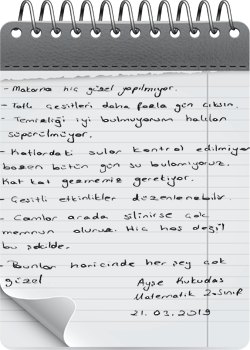 - Makarna hiç güzel yapılmıyor.
- Tatlı çeşitleri daha fazla gün çıksın.
- Temizliği iyi bulmuyorum halılar
süpürülmüyor.
- Katlardaki sular kontrol edilmiyor
bazen bütün gün su bulamıyoruz.
Kat kat gezmemiz gerekiyor.
- Çeşitli etkinlikler düzenlenebilir.
- Camlar arada silinirse çok
memnun oluruz. Hiç hoş değil
bu şekilde.
- Bunlar haricinde her şey çok
güzel
Ayşe Kukudas
Matematik 2.sınıf
21.03.2019